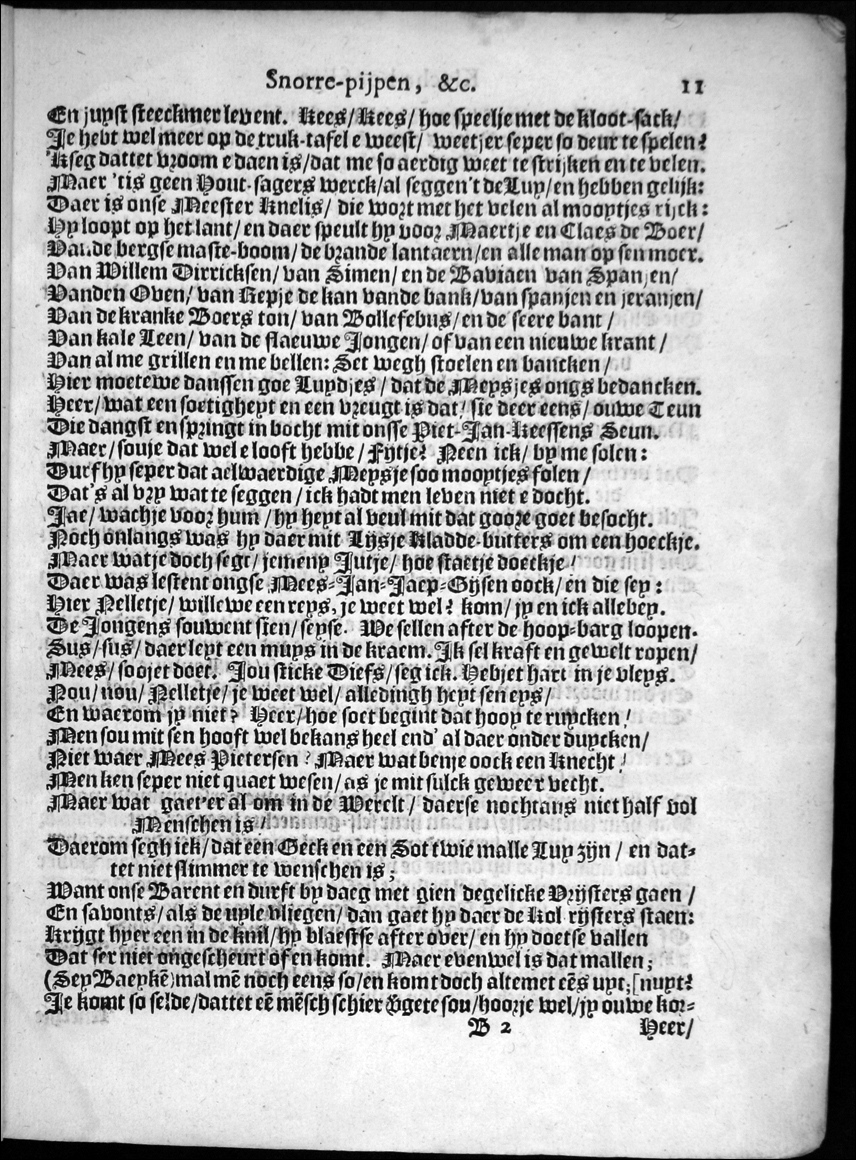 Snorre-pijpen, &c. 11
En juyst steeckmer levent. Kees/ Kees/ hoe speelje met de kloot-sack/
Je hebt wel meer op de truk-tafel e weest/ weetjer seper so deur te spelen?
'k seg dattet vroom e daen is/ dat me so aerdig weet te strijken en te velen.
Maer 'tis geen Hout-sagers werck/ al seggen't de Luy/ en hebben gelijk:
Daer is onse Meester Knelis/ die wort met het velen al mooytjes rijck:
Hy loopt op het lant/ en daer speult hy voor Maertje en Claes de Boer/
Van de bergse maste-boom/ de brande lantaern/ en alle man op sen moer.
Van Willem Dirricksen/ van Simen/ en de Baviaen van Spanjen/
Vanden Oven/ van Kepje de kan vande bank/ van spanjen en jeranjen/
Van de kranke Boers ton/ van Bollefebus/ en de seere bant/
Van kale Leen/ van de flaeuwe Jongen/ of van een nieuwe krant/
Van al me grillen en me bellen: Set wegh stoelen en bancken/
Hier moetewe danssen goe Luydjes/ dat de Meysjes ongs bedancken.
Heer/ wat een soetigheyt en een vreugt is dat! sie deer eens/ ouwe Teun
Die dangst en springt in bocht mit onsse Piet-Jan-Keessens Seun.
Maer/ souje dat wel e looft hebbe/ Fytje? Neen ick/ by me solen:
Durf hy seper dat aelwaerdige Meysje soo mooytjes folen/
Dat's al vry wat te seggen/ ick hadt men leven niet e docht.
Jae/ wachje voor hum/ hy heyt al veul mit dat goore goet besocht.
Noch onlangs was hy daer mit Lijsje Kladde-butters om een hoeckje.
Maer watje doch segt/ jemeny Jutje/ hoe staetje doetkje!
Daer was lestent ongse Mees-Jan-Jaep-Gijsen oock/ en die sey:
Hier Nelletje/ willewe een reys, je weet wel? kom/ jy en ick allebey.
De Jongens souwent sien/ seyse. We sellen after de hoop-barg loopen.
Sus/ sus/ daer leyt een muys in de kraem. Ik sel kraft en gewelt ropen/
Mees/ soojet doet. Jou sticke Diefs/ seg ick. Hebjet hart in je vleys.
Nou/ nou/ Nelletje/ je weet wel/ alledingh heyt sen eys/
En waerom jy niet? Heer/ hoe soet begint dat hooy te ruycken!
Men sou mit sen hooft wel bekans heel end' al daer onder duycken/
Niet waer Mees Pietersen? Maer wat benje oock een Knecht!
Men ken seper niet quaet wesen/ as je mit sulck geweer vecht.
Maer wat gaet'er al om in de Werelt/ daerse nochtans niet half vol
Menschen is!
Daerom segh ick/ dat een Geck en een Sot twie malle Luy zijn/ en dat-
tet niet slimmer te wenschen is;
Want onse Barent en durft by daeg met gien degelicke Vrijsters gaen/
En savonts/ als de uyle vliegen/ dan gaet hy daer de Kol rijsters staen:
Krijgt hyer een in de knil/ hy blaestse after over/ en hy doetse vallen
Dat ser niet ongescheurt of en komt. Maer evenwel is dat mallen;
(Sey Baeykē) mal mē noch eens so/ en komt doch altemet eēs uyt; [nuyt?
Je komt so selde/ dattet eē mēsch schier ṽgete sou/ hoorje wel/ jy ouwe kor-
B 2 Heer/